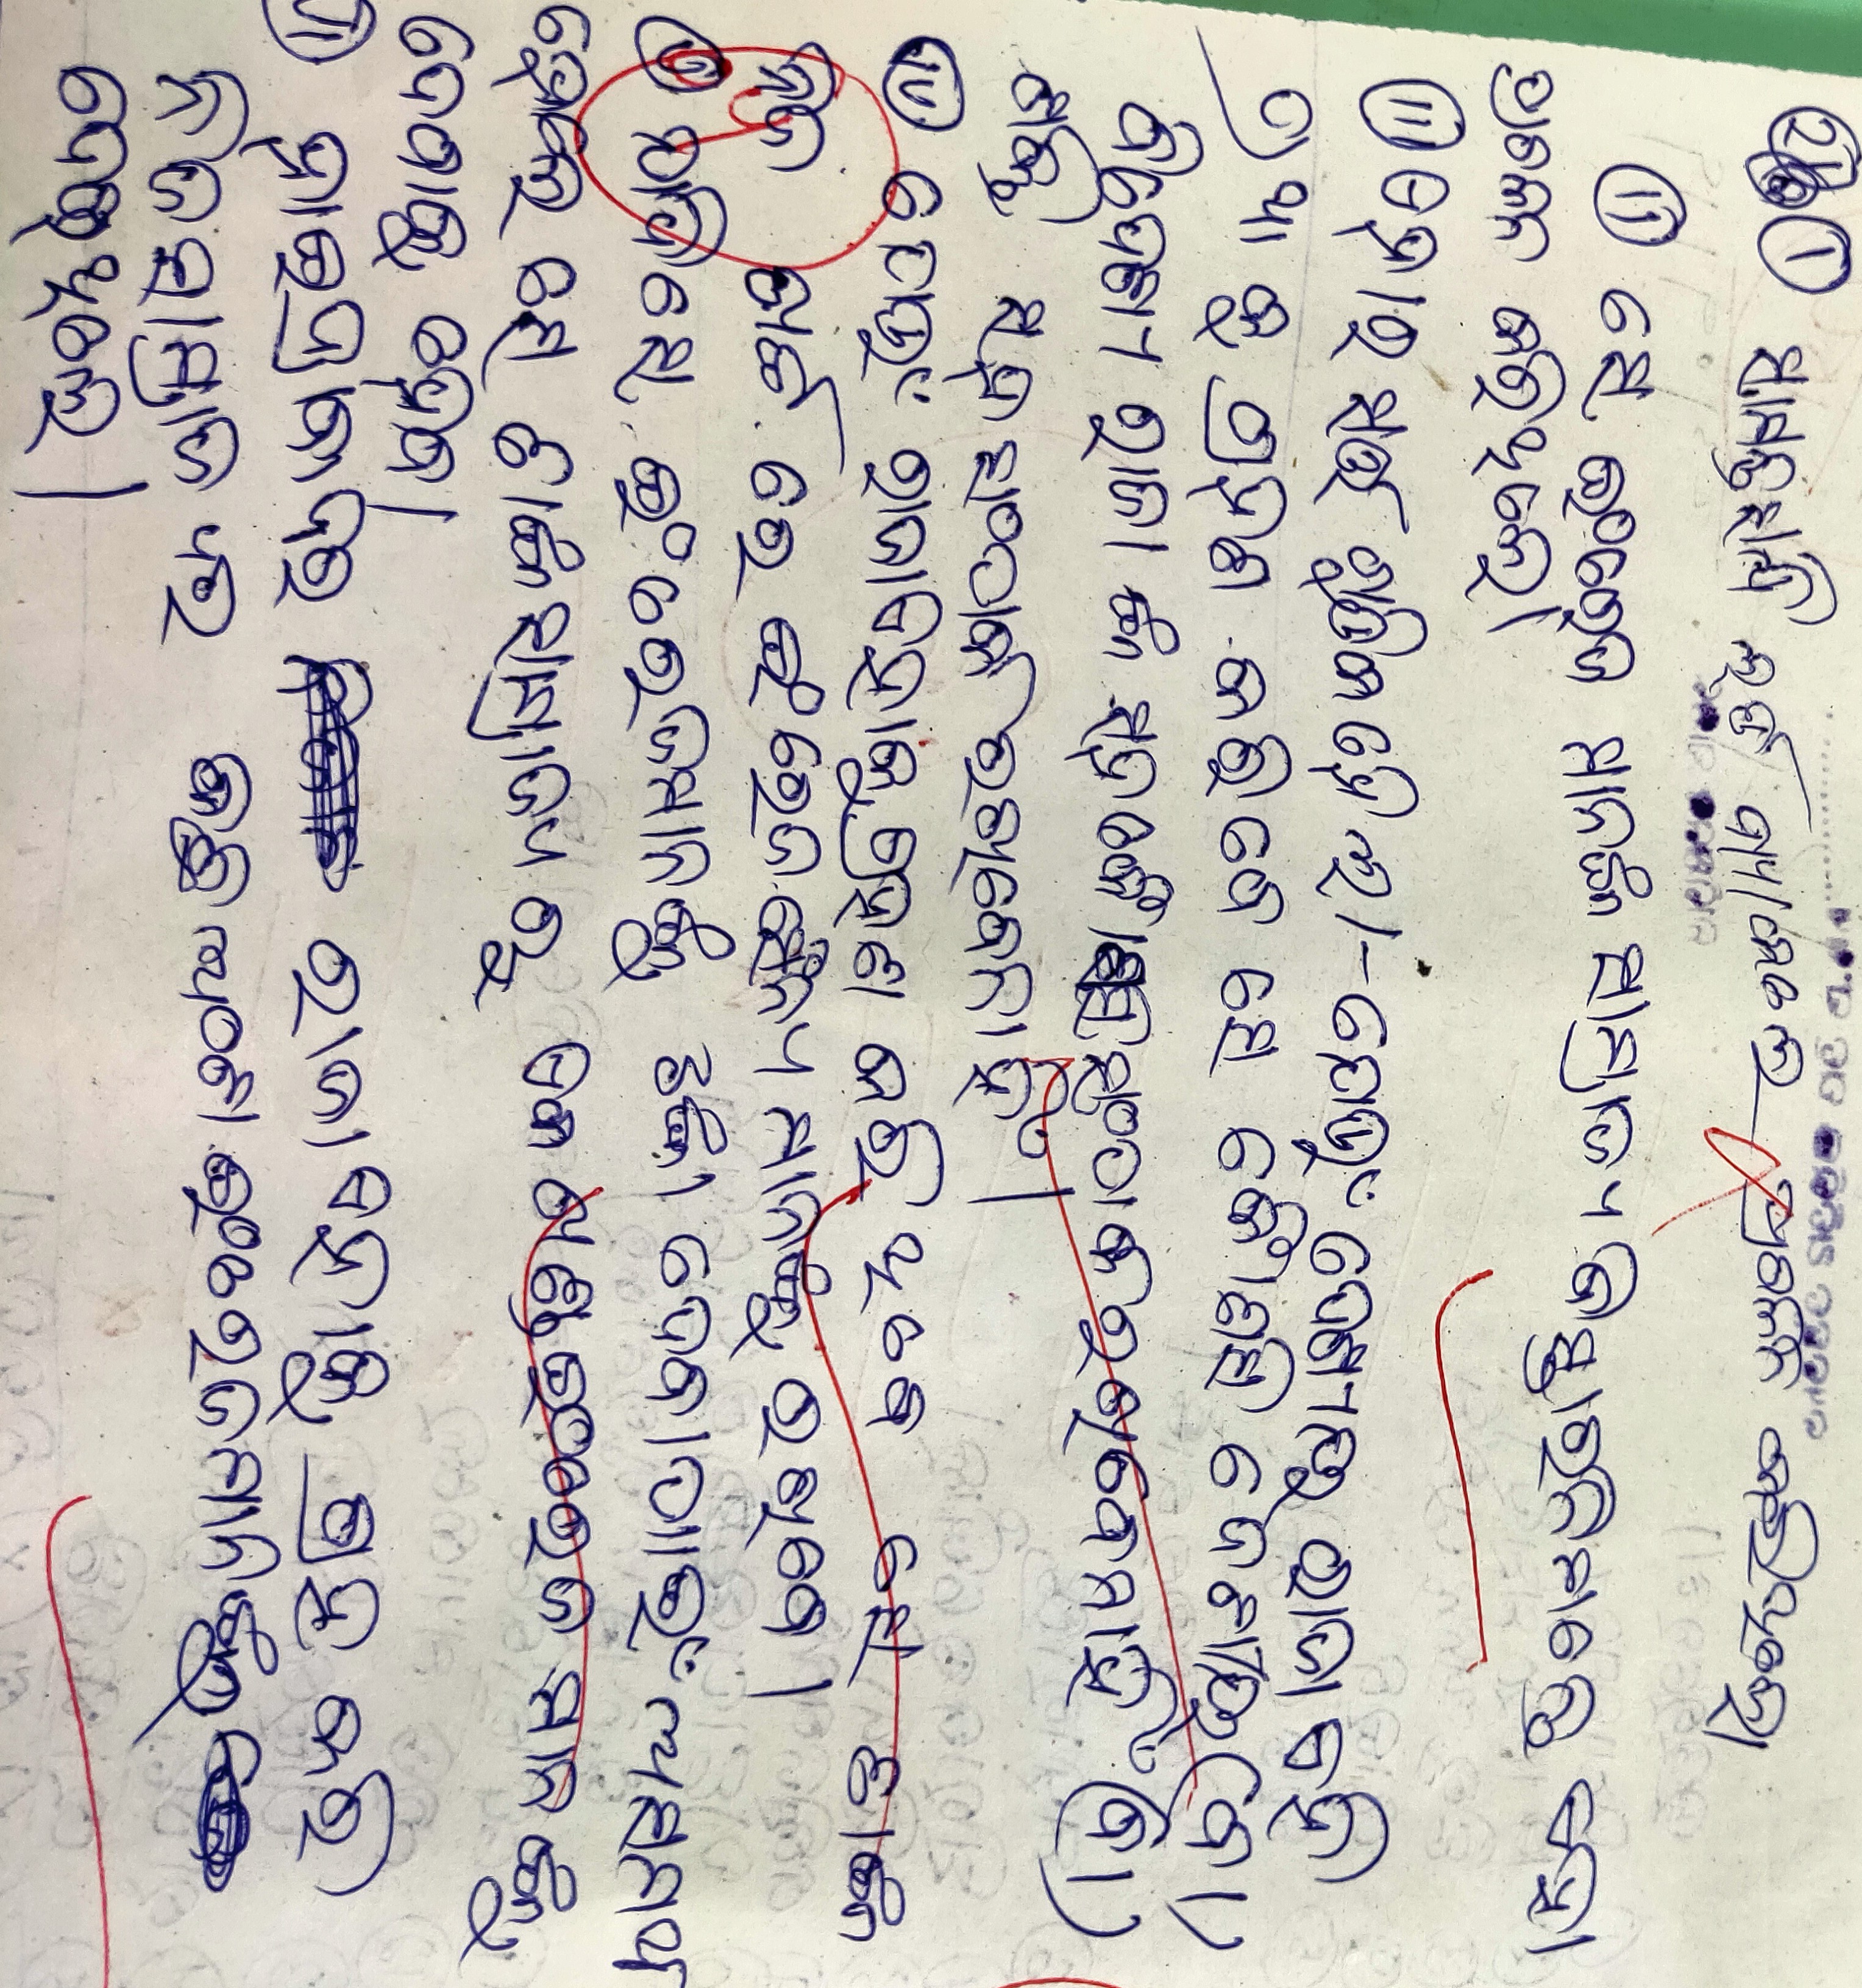 ୨। ① ସାମନ୍ତସନ୍ଧି ଲର୍ଡ ବ୍ୟାନେଲେ ପ୍ରଚଳନ କରିଥିଲେ।
ⅱ ସେ ଇଂରେଜ ମାନଙ୍କ ସାମ୍ରାଜ୍ୟ ବିସ୍ତାରନିମନ୍ତେ ଏହା
ପ୍ରଚଳନ କରିଥିଲେ।
ⅲ ଏହାର ସର୍ତ୍ତ ଗୁଡିକ ହେଲା- ଯେଉଁ ଦେଶୀୟ ରାଜା ଏହି
ପ୍ରଥା କୁ ଗ୍ରହଣ କରିବେ ସେ କୌଣସି ଦେଶୀୟ (ବା)
ବିଦେଶୀ ରାଜା ଙ୍କ ସହ କୌଣସି ସଂପର୍କ ରଖିବେନାହିଁ (ବା)
ଶକ୍ତି ସହ ସଂପର୍କ ରଖିବେନାହିଁ।
ⅳ ଯେଉଁ ରାଜା ଏହାକୁ ଗ୍ରହଣ କରି ଥିବେ ସେ ତାଙ୍କ
ନିଜ ଖର୍ଚ୍ଚ ରେ ଇଂରେଜ ସୈନ୍ୟ ମାନଙ୍କୁ ରଖିବେ।
ⅴ ଯଦି ସେ ଇଂରେଜମାନଙ୍କୁ ଟଙ୍କା ଦେବାପାଇଁ ଅସମର୍ଥ
ହେଲେ ସେ ତାଙ୍କ ସାମ୍ରାଜ୍ୟ ରୁ ଏକ ଖଣ୍ଡ ଇଂରେଜ ମାନଙ୍କୁ
ଦେବାକୁ ହେବ।
ⅵ ହାଇଦ୍ରାବାଦର ରାଜା ଏହାକୁ ଗ୍ରହ କରି
ନିଜ ସାମ୍ରାଜ୍ୟର କିଛି ଅଂଶ ଇଂରେଜମାନଙ୍କୁ
ଦେଇଥିଲେ।